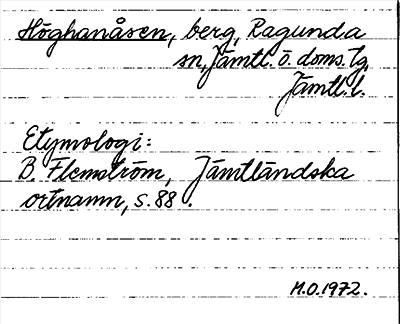 Höghanåsen, berg, Ragunda
sn, Jämtl. ö. doms. tg,
Jämtl. l.
Etymologi:
B. Flemström, Jämtländska
ortnamn, s. 88.
M.O. 1972.